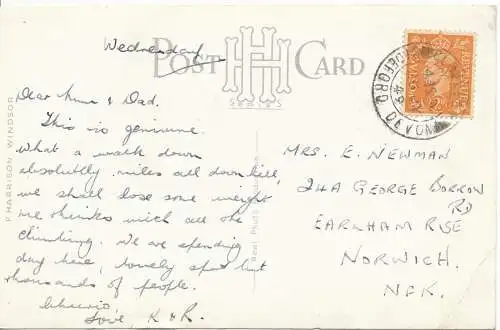 Wednesday
POST CARD
HHH
SERIES
Dear Mum & Dad.
This is geniuine.
What a walk down
absolutly miles all down hill,
we shall lose some weight
we thinks with all the
climbing. We are spending
day here, lovely spot but
thousands of people.
Cheerio
Love K & R.
F HARRISON WINDSOR
Real Photo
MRS. E. NEWMAN
24A GEORGE BORROW
RD
EARLHAM RISE
NORWICH.
NFK.
BIDEFORD DEVON
49
POSTAGE
2D